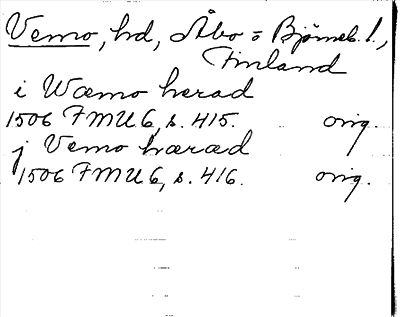 Vemo, hd, Åbo = Björneb. l.,
Finland
i Wæmo herad
1506 FMU 6, s. 415. orig.
j Vemo hærad
1506 FMU 6, s. 416. orig.